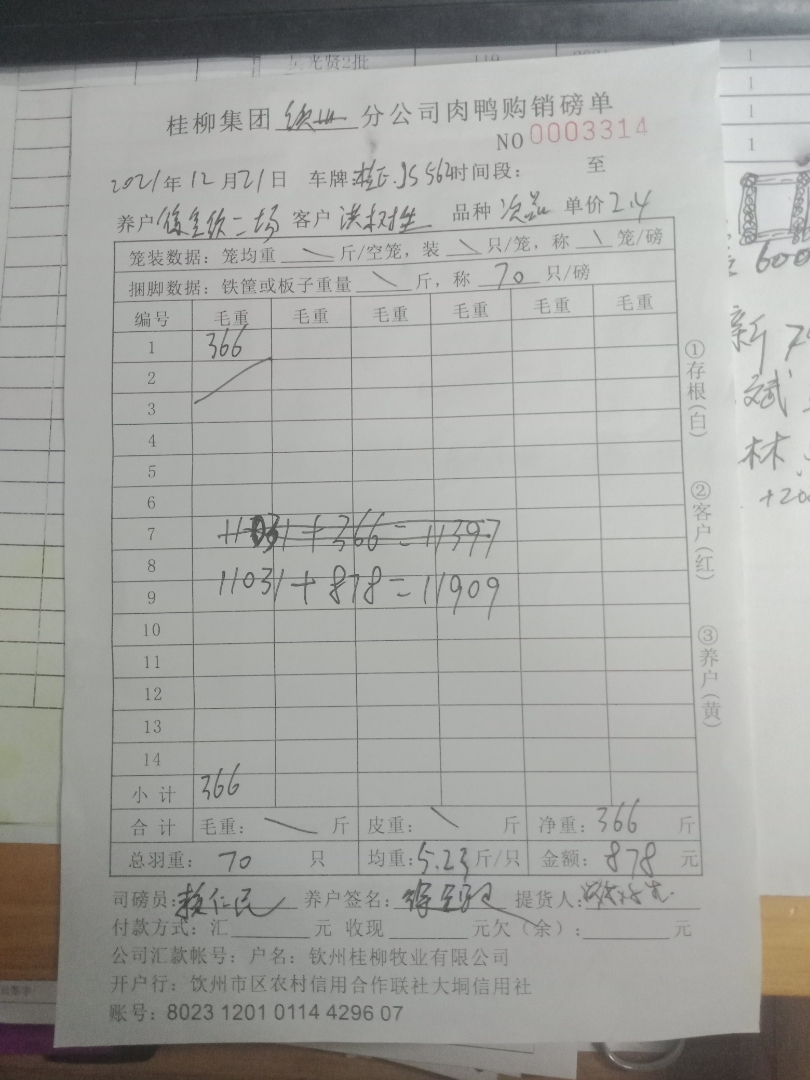 光贤2批 119
桂柳集团 钦州 分公司肉鸭购销磅单
NO 0003314
2021年12月21日 车牌: 桂E·JS562 时间段: 至
养户 二场 客户 洪树生 品种 次品 单价 2.4
笼装数据: 笼均重 \ 斤/空笼, 装 \ 只/笼, 称 \ 笼/磅
捆脚数据: 铁筐或板子重量 \ 斤, 称 70 只/磅
编号 毛重 毛重 毛重 毛重 毛重 毛重
1 366
2
3
4
5
6
7 11031+366=11397
8
9 11031+878=11909
10
11
12
13
14
小计 366
合计 毛重: \ 斤 皮重: \ 斤 净重: 366 斤
总羽重: 70 只 均重: 5.23 斤/只 金额: 878 元
司磅员: 赖仁民 养户签名: 提货人:
付款方式: 汇 元 收现 元欠(余): 元
公司汇款帐号: 户名: 钦州桂柳牧业有限公司
开户行: 饮州市区农村信用合作联社大垌信用社
账号: 8023 1201 0114 4296 07
①存根(白)
②客户(红)
③养户(黄)
1
1
1
1
600
新
斌
林